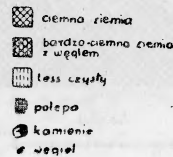 ciemna ziemia
bardzo-ciemna ziemia
z węglem
less czysty
polepa
kamienie
węgiel